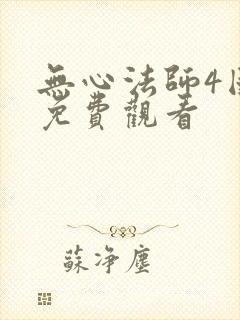 無心法師4
免費觀看
蘇净塵